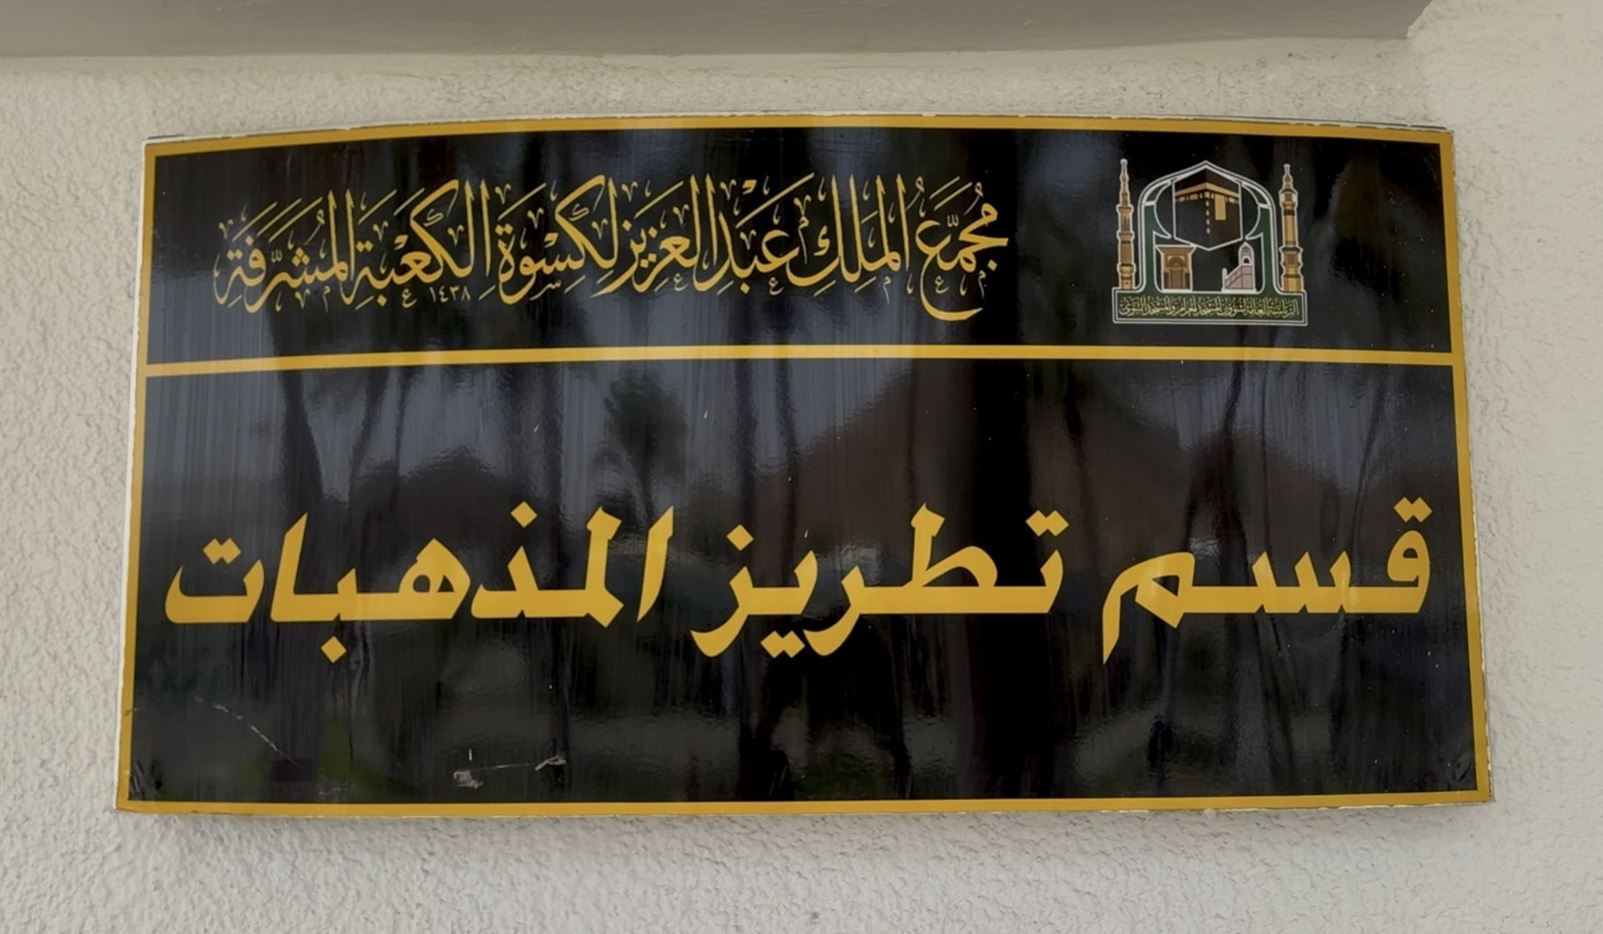 مُجَمَّعُ المَلِكِ عَبْدِالعَزِيزِ لِكِسْوَةِ الكَعْبَةِ المُشَرَّفَةِ
١٤٣٨
الرئاسة العامة لشؤون المسجد الحرام والمسجد النبوي
قسم تطريز المذهبات